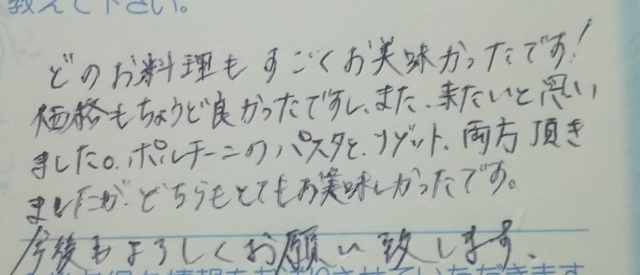 教えて下さい。
どのお料理もすごくお美味かったです!
価格もちょうど良かったですし、また、来たいと思い
ました。ポルチーニのパスタと、リゾット、両方頂き
ましたが、どちらもとてもお美味しかったです。
今後もよろしくお願い致します。
させていただきます